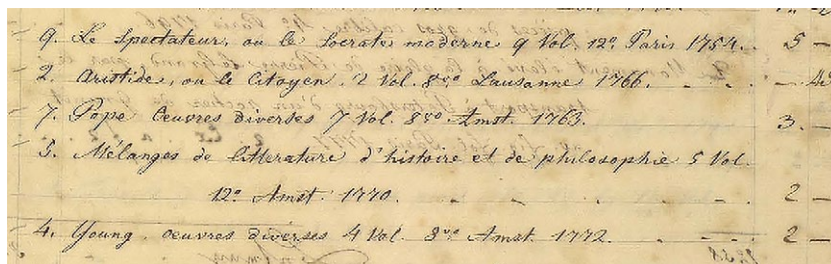 9. Le Spectateur, ou le Socrate moderne 9 Vol. 12º Paris 1754. . 5 —
2. Aristide, ou le Citoyen. 2 Vol. 8vo Lausanne 1766. . . . — 40
7. Pope Oeuvres diverses 7 Vol. 8vo Amst. 1763. 3. —
5. Mélanges de litterature d'histoire et de philosophie 5 Vol.
12º Amst. 1770. . . . . 2 —
4. Young. oeuvres diverses 4 Vol. 8vo Amst. 1772. . . . 2 —